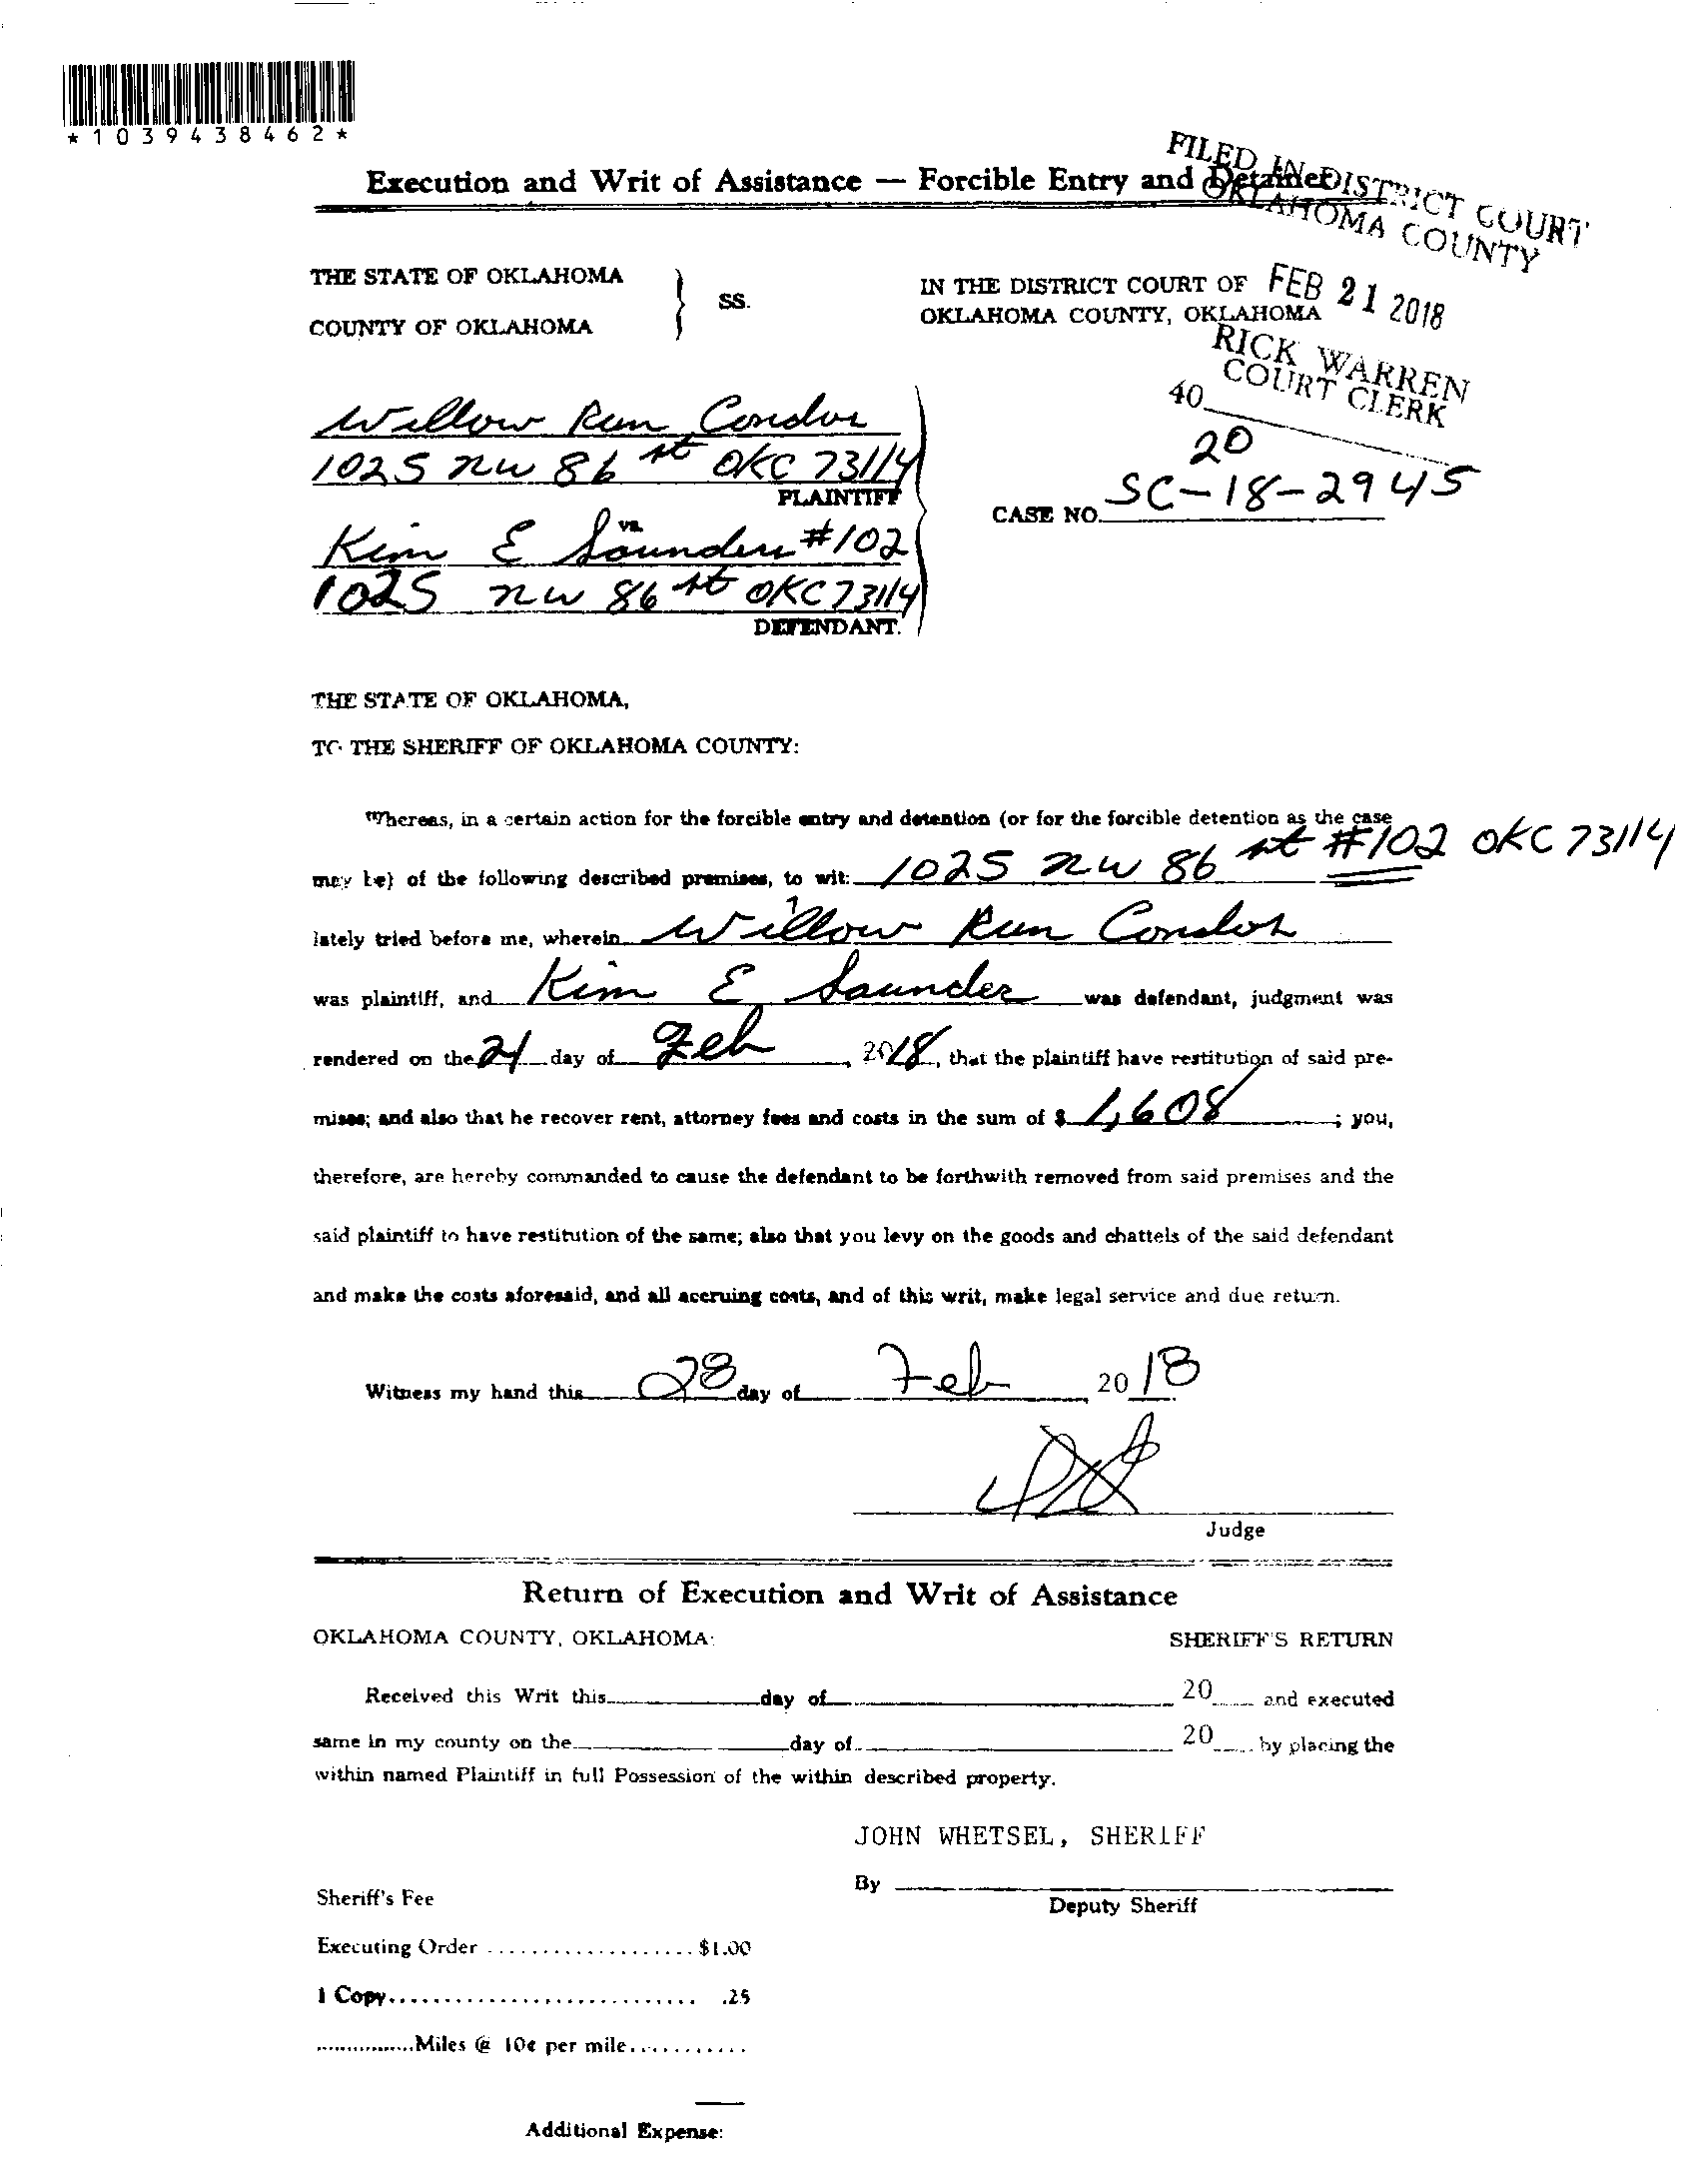 *1039438462*
FILED IN DISTRICT COURT
OKLAHOMA COUNTY
Execution and Writ of Assistance — Forcible Entry and Detainer
THE STATE OF OKLAHOMA
COUNTY OF OKLAHOMA
SS.
IN THE DISTRICT COURT OF
OKLAHOMA COUNTY, OKLAHOMA
FEB 21 2018
RICK WARREN
COURT CLERK
40
20
Willow Run Condos
1025 NW 86 st OKC 73114
PLAINTIFF
CASE NO. SC-18-2945
vs.
Kim E Saunders #102
1025 NW 86 st OKC 73114
DEFENDANT.
THE STATE OF OKLAHOMA,
TO THE SHERIFF OF OKLAHOMA COUNTY:
Whereas, in a certain action for the forcible entry and detention (or for the forcible detention as the case
may be) of the following described premises, to wit: 1025 NW 86 st #102 OKC 73114
lately tried before me, wherein Willow Run Condos
was plaintiff, and Kim E Saunders was defendant, judgment was
rendered on the 21 day of Feb, 2018, that the plaintiff have restitution of said pre-
mises; and also that he recover rent, attorney fees and costs in the sum of $ 1,608; you,
therefore, are hereby commanded to cause the defendant to be forthwith removed from said premises and the
said plaintiff to have restitution of the same; also that you levy on the goods and chattels of the said defendant
and make the costs aforesaid, and all accruing costs, and of this writ, make legal service and due return.
Witness my hand this 28 day of Feb, 2018
Judge
Return of Execution and Writ of Assistance
OKLAHOMA COUNTY, OKLAHOMA:
SHERIFF'S RETURN
Received this Writ this day of 20 and executed
same in my county on the day of 20 by placing the
within named Plaintiff in full Possession of the within described property.
JOHN WHETSEL, SHERIFF
By
Deputy Sheriff
Sheriff's Fee
Executing Order .................... $1.00
1 Copy............................ .25
...............Miles @ 10¢ per mile...........
Additional Expense: